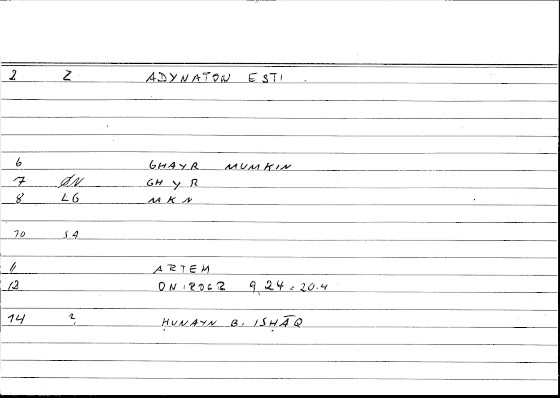 2 Z ADYNATON ESTI
6 GHAYR MUMKIN
7 ØN GHYR
8 LG MKN
10 SA
11 ARTEM
12 ONIROCR 9,24 = 20.4
14 ? ḤUNAYN B. ISḤĀQ